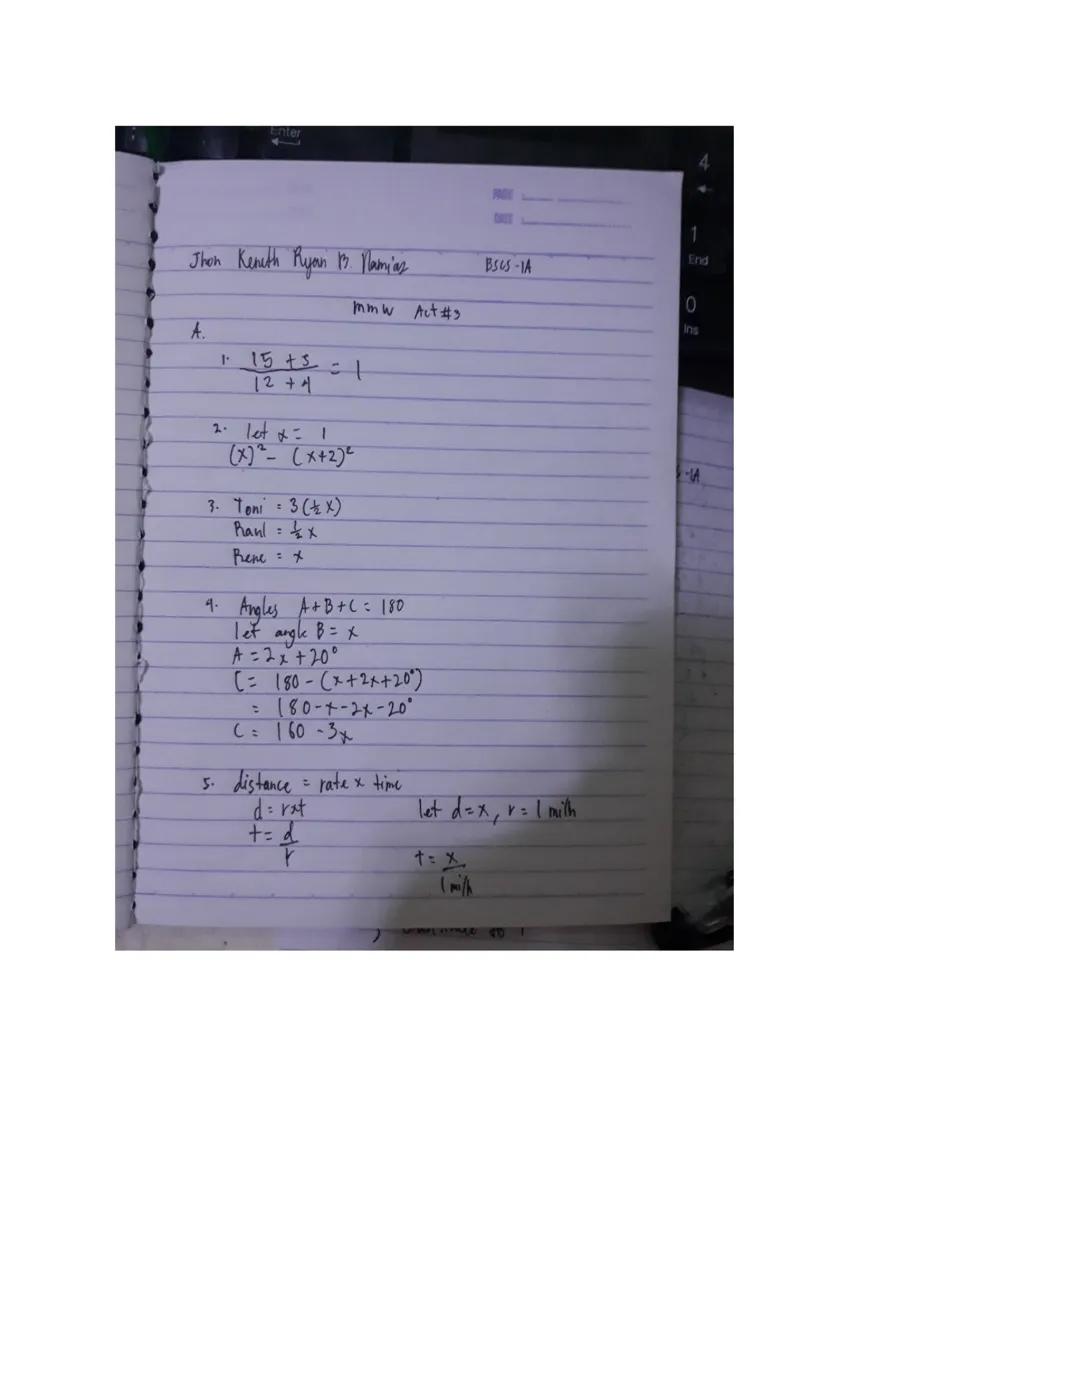 Enter
4
PAGE
DATE
1
End
Jhon Keneth Ryan B. Namias BSCS-1A
0
Ins
mmw Act #3
A.
1. 15 + 3 / 12 + 4 = 1
-1A
2. let x = 1
(x)² - (x+2)²
3. Toni = 3(½x)
Raul = ½x
Rene = x
4. Angles A+B+C = 180
let angle B = x
A = 2x + 20°
C = 180 - (x+2x+20°)
= 180-x-2x-20°
C = 160 - 3x
5. distance = rate x time
d = rxt let d=x, r = 1 mi/h
t = d / r
t = x / 1 mi/h